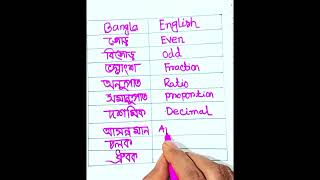 Bangla English
জোড় Even
বিজোড় Odd
ভগ্নাংশ Fraction
অনুপাত Ratio
সমানুপাত proportion
দশমিক Decimal
আসন্ন মান A
চলক
ধ্রুবক